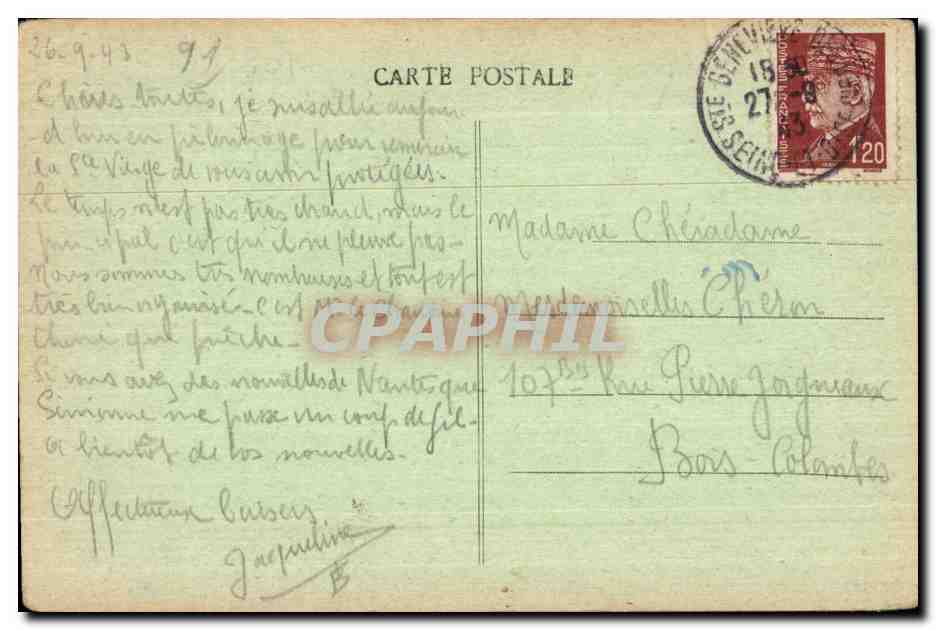 26-9-43 91
CARTE POSTALE
Chères toutes, je suis allée aujour
d'hui en pèlerinage pour remercier
la Ste Vierge de vous avoir protégées.
Le temps n'est pas très chaud, mais le
principal c'est qu'il ne pleuve pas-
Nous sommes très nombreuses et tout est
très bien organisé- c'est Mr le chanoine
qui prêche-
Si vous avez des nouvelles de Nantes que
Simonne me passe un coup de fil-
A bientôt de vos nouvelles-
Affectueux baisers
Jacqueline
B
STE GENEVIEVE
18H
27-9
43
SEINE
1F20
Madame Chéradame
Mesdemoiselles Chéron
107 Bis Rue Pierre Joigneaux
Bois-Colombes
CPAPHIL